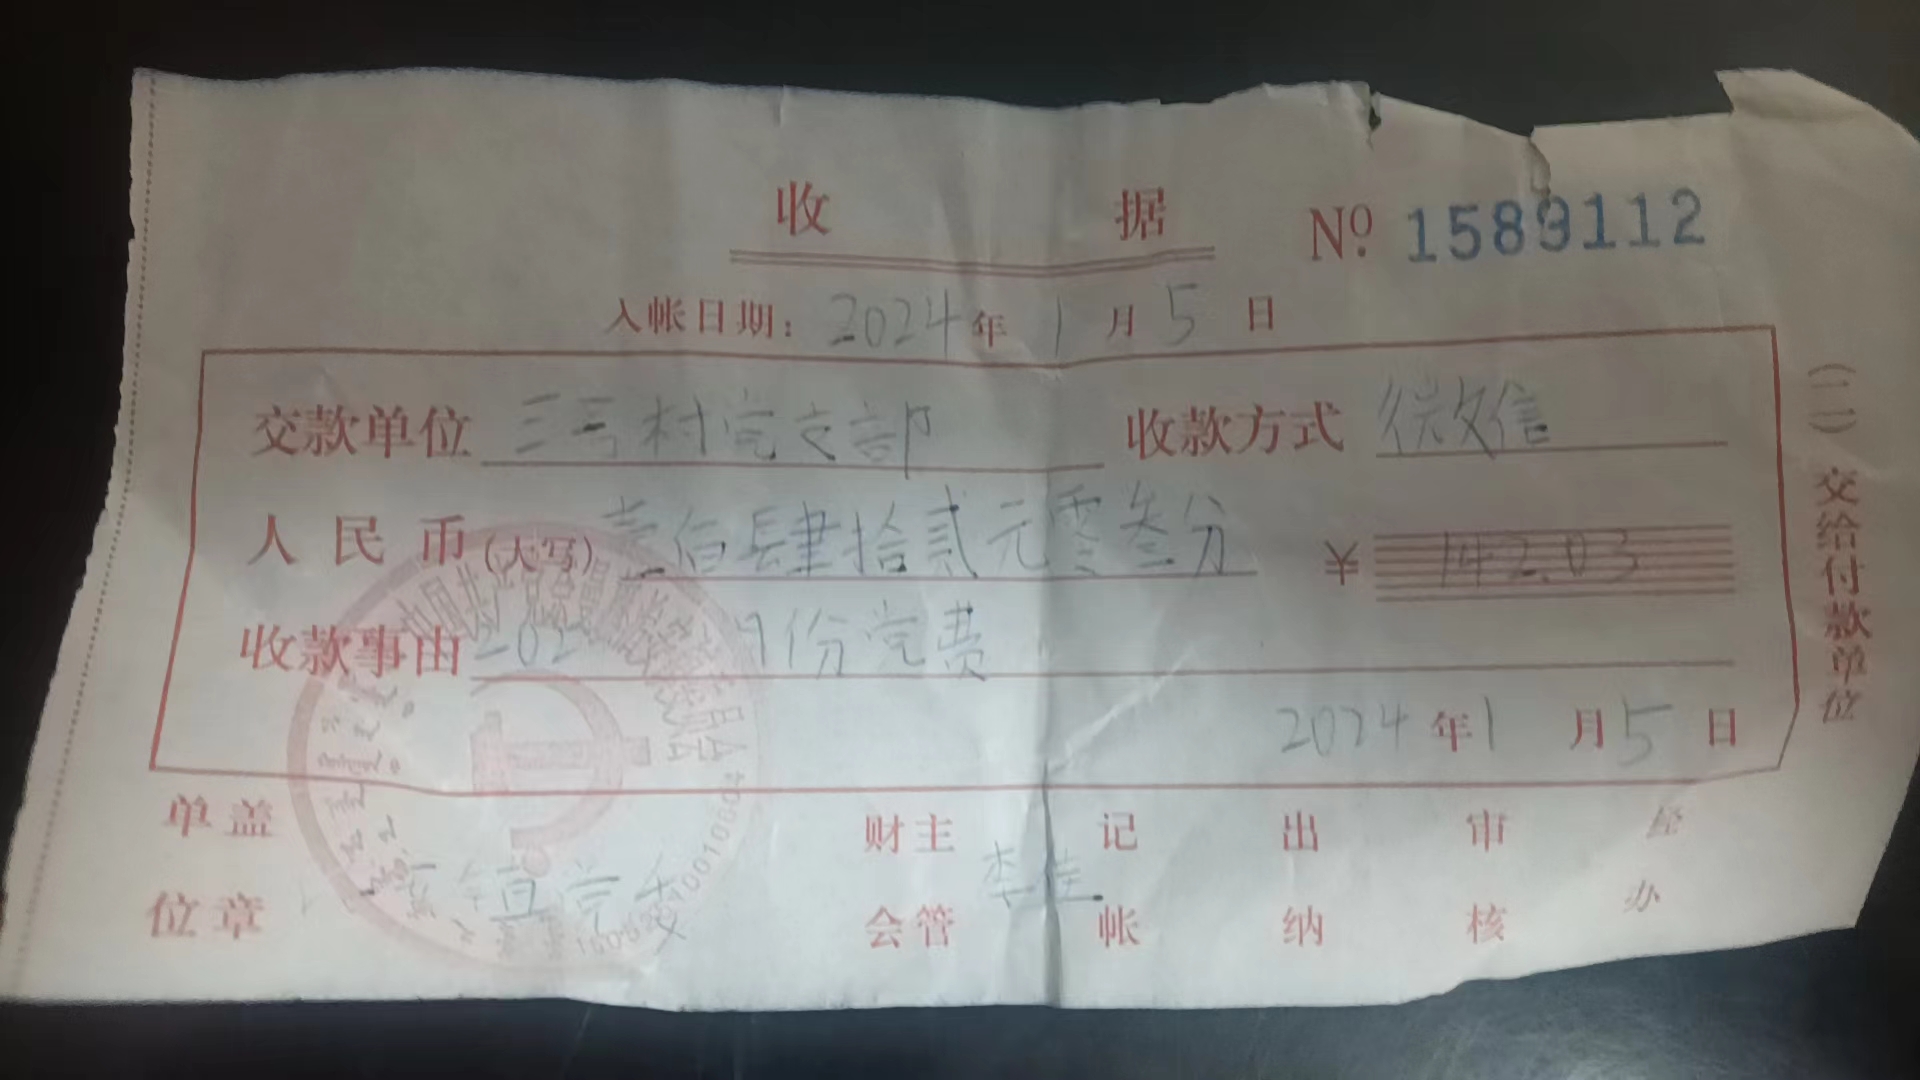 收 据 No. 1589112
入帐日期: 2024 年 1 月 5 日
交款单位 三号村党支部 收款方式 微信
人民币(大写) 壹佰肆拾贰元零叁分 ¥ 142.03
收款事由 202 月份党费
2024 年 1 月 5 日
单位盖章 镇党委 财会主管 李佳 记帐 出纳 审核 经办
(二)交给付款单位
中国共产党